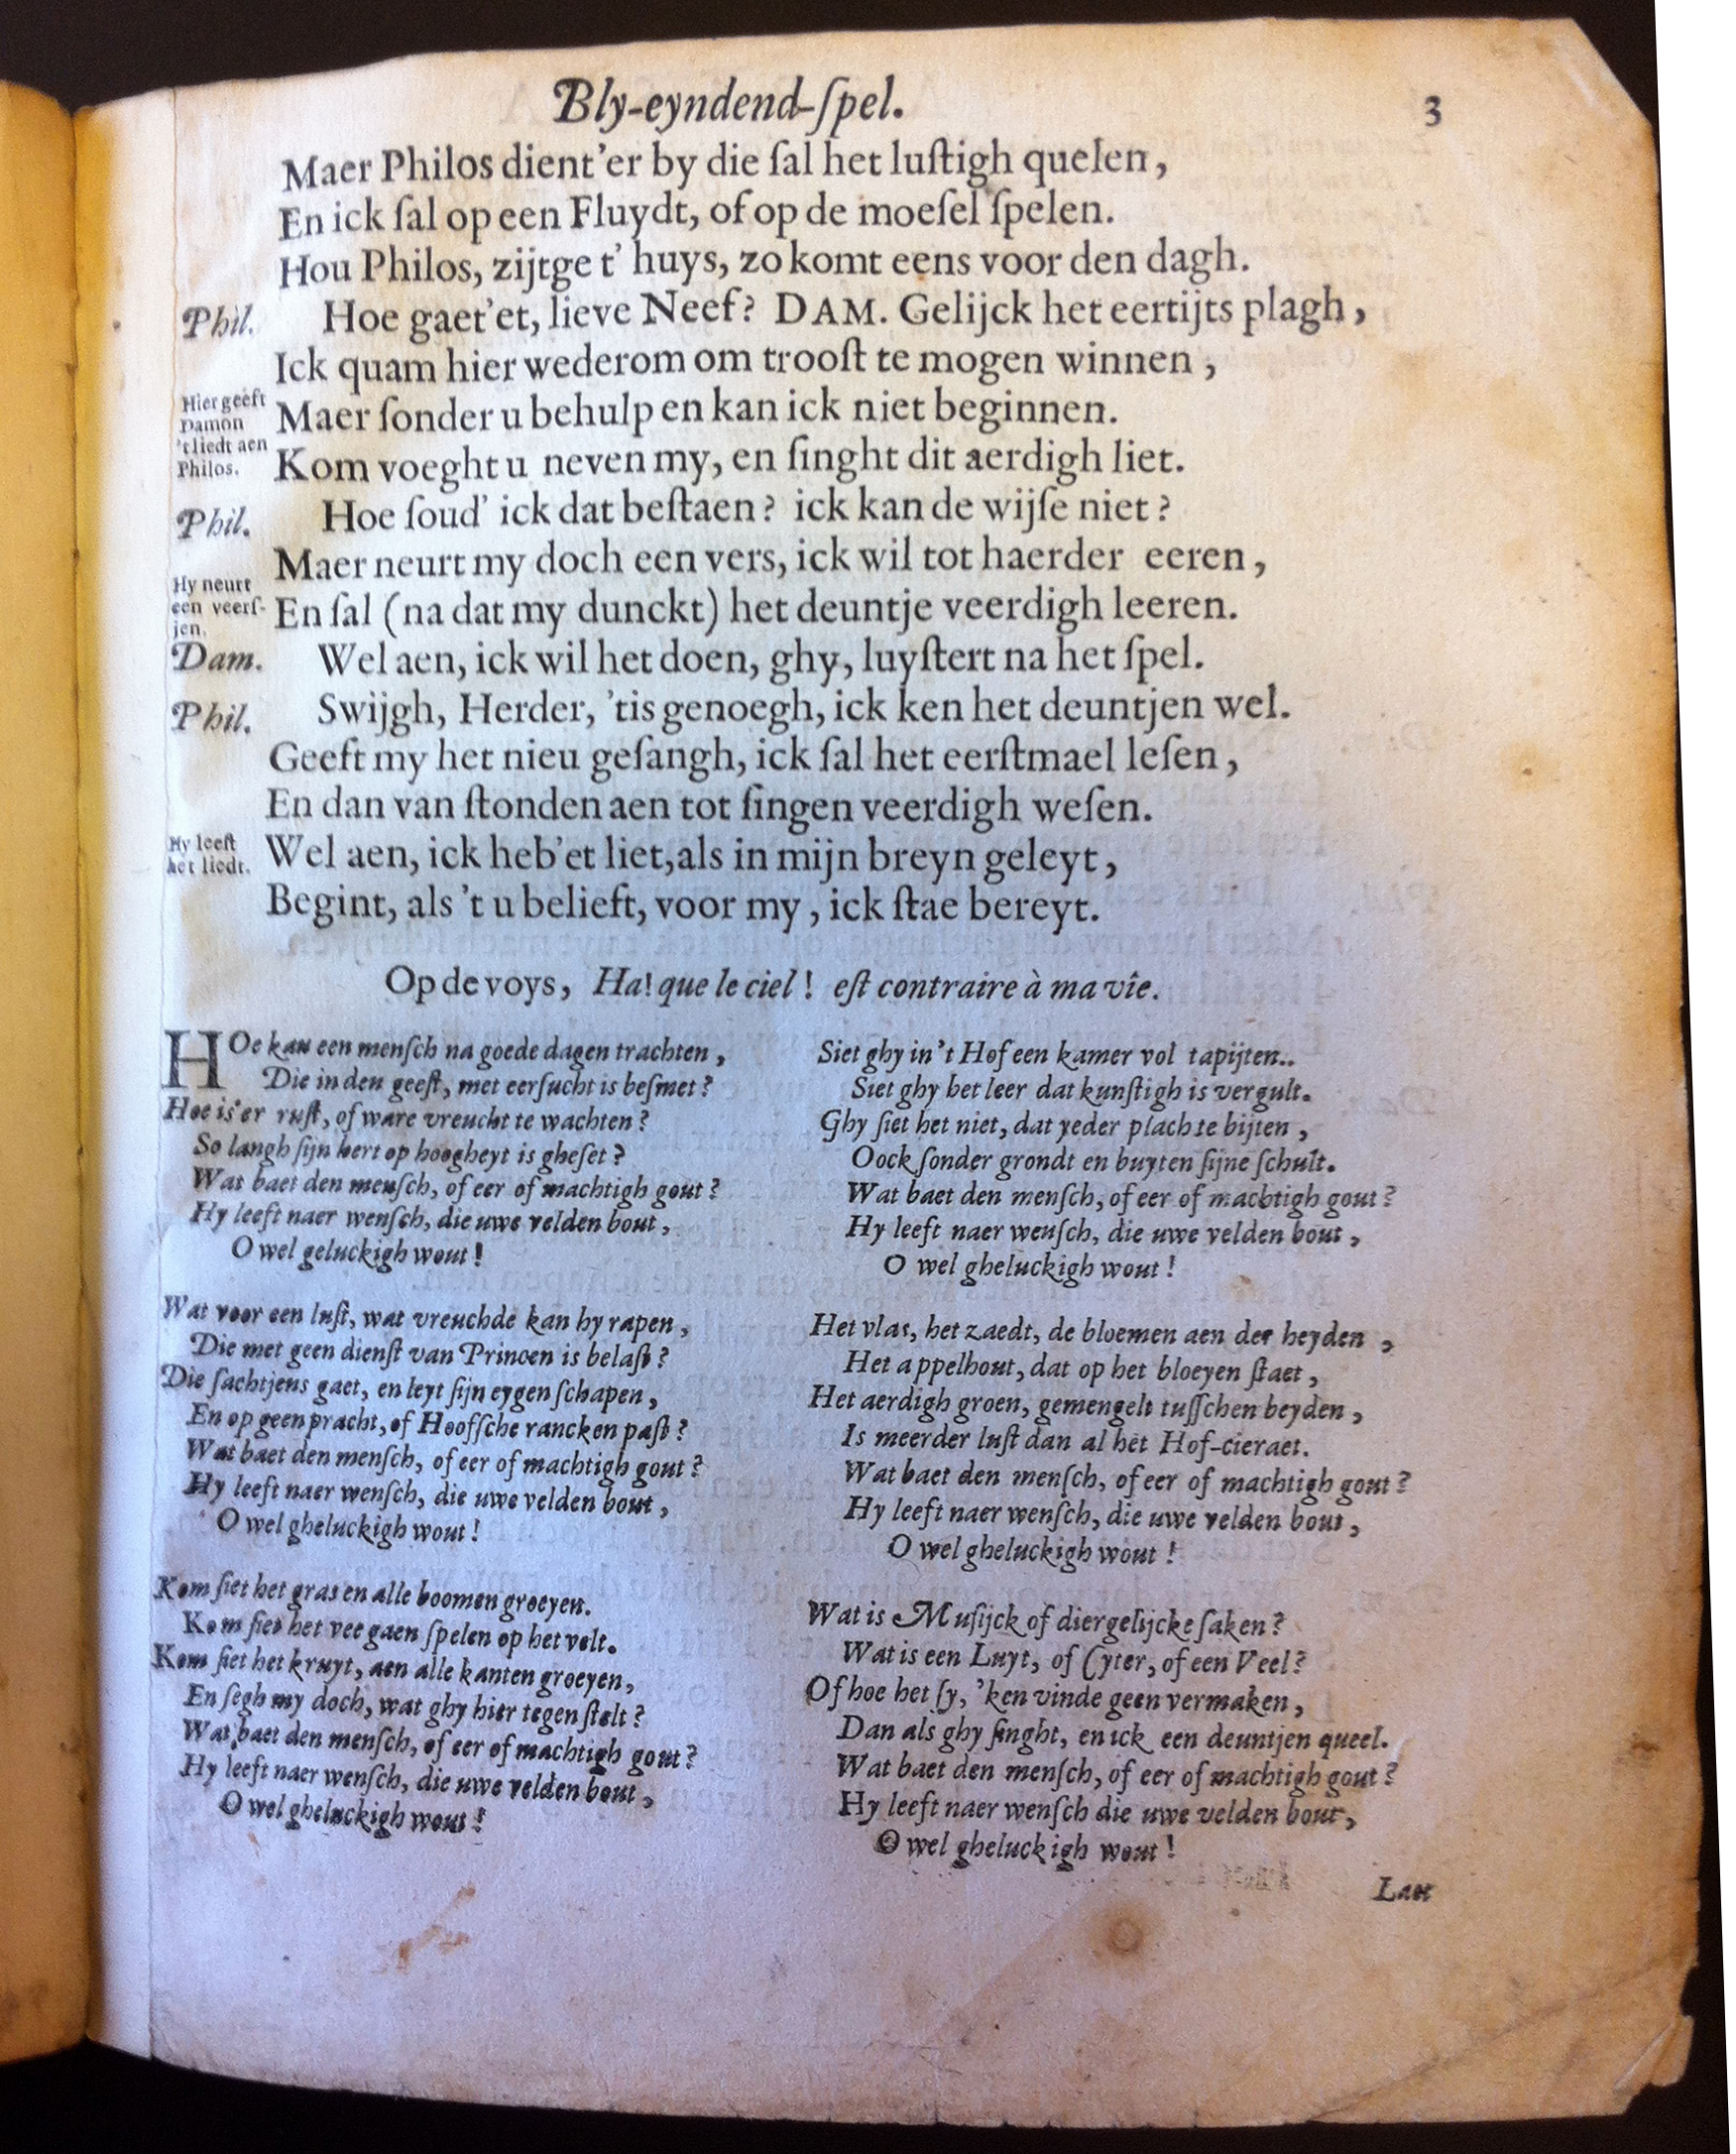 Bly-eyndend-ſpel.
3
Maer Philos dient'er by die ſal het luſtigh quelen,
En ick ſal op een Fluydt, of op de moeſel ſpelen.
Hou Philos, zijtge t' huys, zo komt eens voor den dagh.
Phil. Hoe gaet'et, lieve Neef? DAM. Gelijck het eertijts plagh,
Ick quam hier wederom om trooſt te mogen winnen,
Hier geeft
Damon
't liedt aen
Philos.
Maer ſonder u behulp en kan ick niet beginnen.
Kom voeght u neven my, en ſinght dit aerdigh liet.
Phil. Hoe ſoud' ick dat beſtaen? ick kan de wijſe niet?
Maer neurt my doch een vers, ick wil tot haerder eeren,
Hy neurt
een veerſ-
jen.
En ſal (na dat my dunckt) het deuntje veerdigh leeren.
Dam. Wel aen, ick wil het doen, ghy, luyſtert na het ſpel.
Phil. Swijgh, Herder, 'tis genoegh, ick ken het deuntjen wel.
Geeft my het nieu geſangh, ick ſal het eerſtmael leſen,
En dan van ſtonden aen tot ſingen veerdigh weſen.
Hy leeſt
het liedt.
Wel aen, ick heb'et liet, als in mijn breyn geleyt,
Begint, als 't u belieft, voor my, ick ſtae bereyt.
Op de voys, Ha! que le ciel! eſt contraire à ma vîe.
HOe kan een menſch na goede dagen trachten,
Die in den geeſt, met eerſucht is beſmet?
Hoe is'er ruſt, of ware vreucht te wachten?
So langh ſijn hert op hoogheyt is gheſet?
Wat baet den menſch, of eer of machtigh gout?
Hy leeft naer wenſch, die uwe velden bout,
O wel geluckigh wout!
Wat voor een luſt, wat vreuchde kan hy rapen,
Die met geen dienſt van Princen is belaſt?
Die ſachtjens gaet, en leyt ſijn eygen ſchapen,
En op geen pracht, of Hooſſche rancken paſt?
Wat baet den menſch, of eer of machtigh gout?
Hy leeft naer wenſch, die uwe velden bout,
O wel gheluckigh wout!
Kom ſiet het gras en alle boomen groeyen.
Kom ſiet het vee gaen ſpelen op het velt.
Kom ſiet het kruyt, aen alle kanten groeyen,
En ſegh my doch, wat ghy hier tegen ſtelt?
Wat baet den menſch, of eer of machtigh gout?
Hy leeft naer wenſch, die uwe velden bout,
O wel gheluckigh wout!
Siet ghy in't Hof een kamer vol tapijten..
Siet ghy het leer dat kunſtigh is vergult.
Ghy ſiet het niet, dat yeder plach te bijten,
Oock ſonder grondt en buyten ſijne ſchult.
Wat baet den menſch, of eer of machtigh gout?
Hy leeft naer wenſch, die uwe velden bout,
O wel gheluckigh wout!
Het vlas, het zaedt, de bloemen aen der heyden,
Het appelhout, dat op het bloeyen ſtaet,
Het aerdigh groen, gemengelt tuſſchen beyden,
Is meerder luſt dan al het Hof-cieraet.
Wat baet den menſch, of eer of machtigh gout?
Hy leeft naer wenſch, die uwe velden bout,
O wel gheluckigh wout!
Wat is Muſijck of diergelijcke ſaken?
Wat is een Luyt, of Cyter, of een Veel?
Of hoe het ſy, 'ken vinde geen vermaken,
Dan als ghy ſinght, en ick een deuntjen queel.
Wat baet den menſch, of eer of machtigh gout?
Hy leeft naer wenſch die uwe velden bout,
O wel gheluckigh wout!
Laet